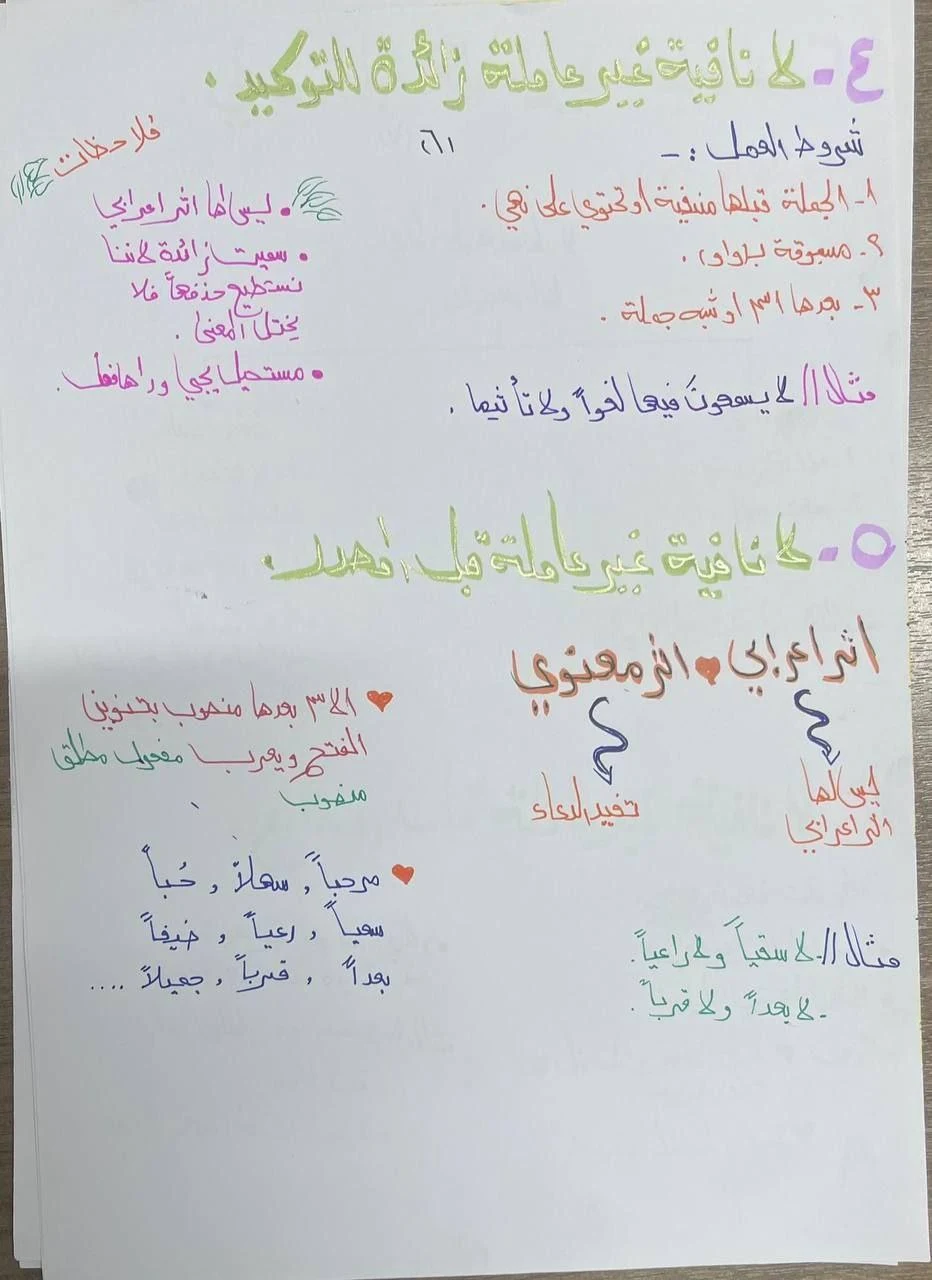 ٤- لا نافية غير عاملة زائدة للتوكيد .
شروط العمل :-
١- الجملة قبلها منفية او تحتوي على نهي .
٢- مسبوقة بـ(واو) .
٣- بعدها اسم او شبه جملة .
مثال// لا يسمعونَ فيها لغواً ولا تأثيما .
ملاحظات
• ليس لها اثر اعرابي
• سميت زائدة لاننا
نستطيع حذفها فلا
يختل المعنى .
• مستحيل يجي وراها فعل .
٥- لا نافية غير عاملة قبل المصدر .
اثر اعرابي ♥ اثر معنوي
ليس لها
اثر اعرابي
تفيد الدعاء
♥ الاسم بعدها منصوب بتنوين
الفتح ويعرب مفعول مطلق
منصوب
♥ مرحباً , سهلاً , حُباً
سعياً , رعياً , ضيفاً
بعداً , قرباً , جميلاً ....
مثال// - لا سقياً ولا راعياً .
- لا بعداً ولا قرباً .